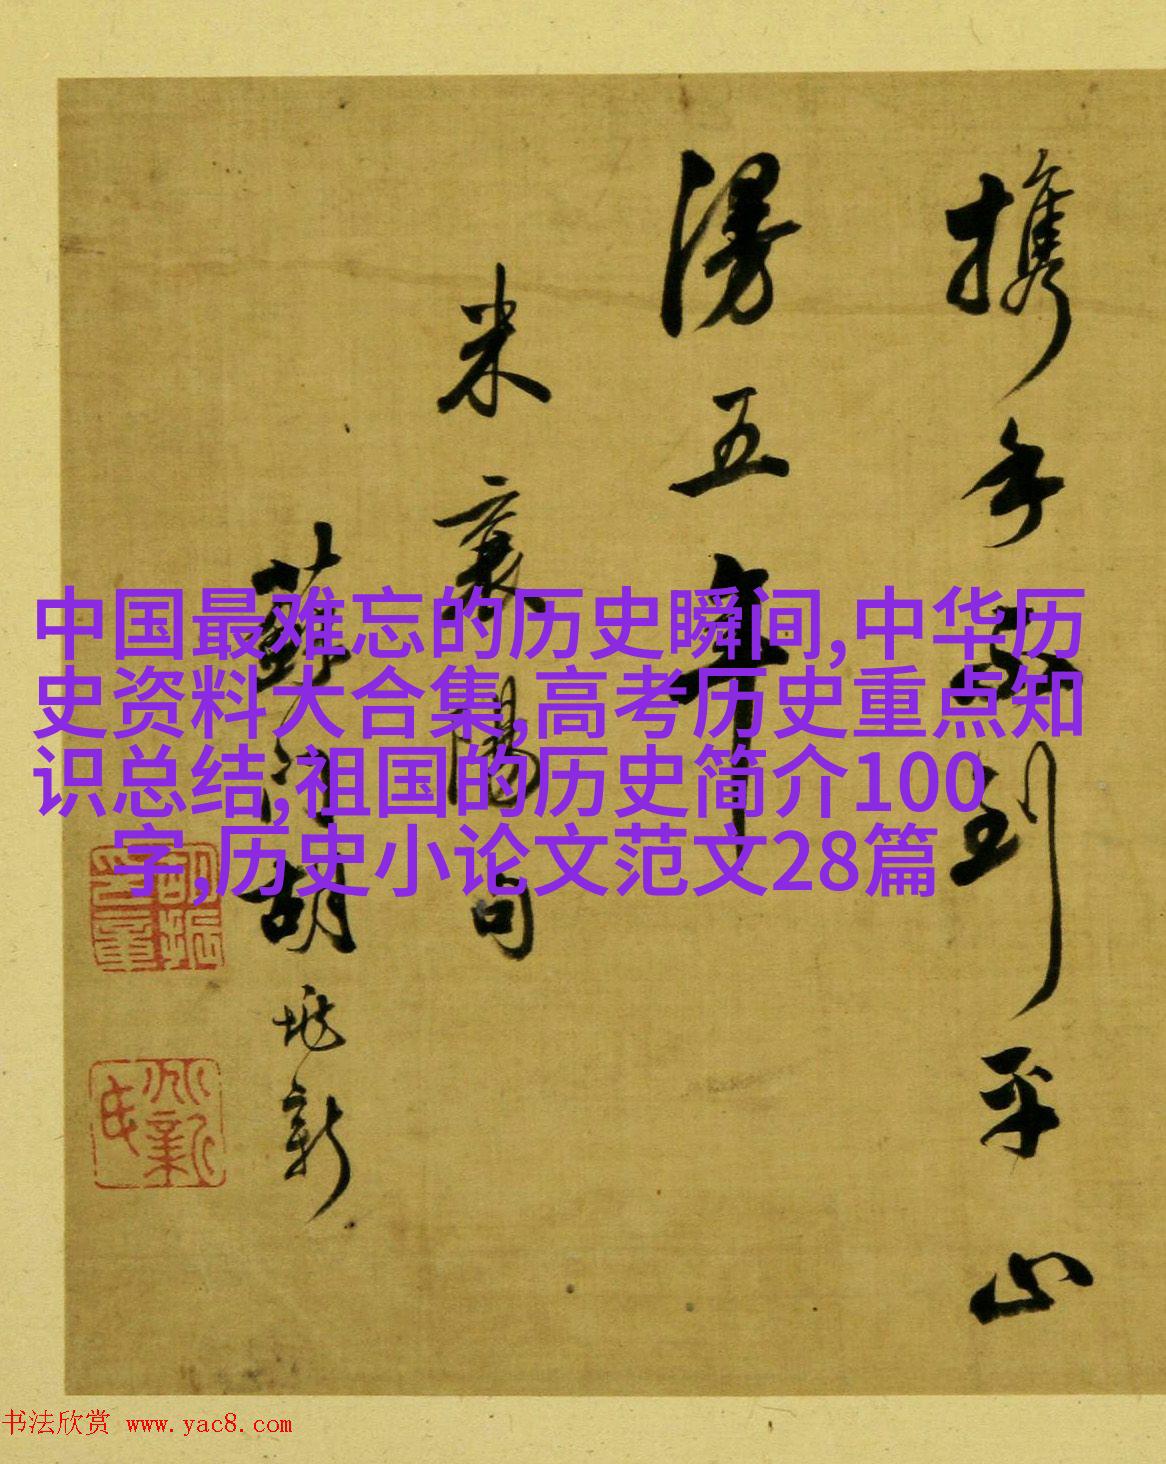 携手到平山
漫五年
米襄陽句
胡新
中国最难忘的历史瞬间,中华历
史资料大合集,高考历史重点知
识总结,祖国的历史简介100
字,历史小论文范文28篇
书法欣赏 www.yac8.com